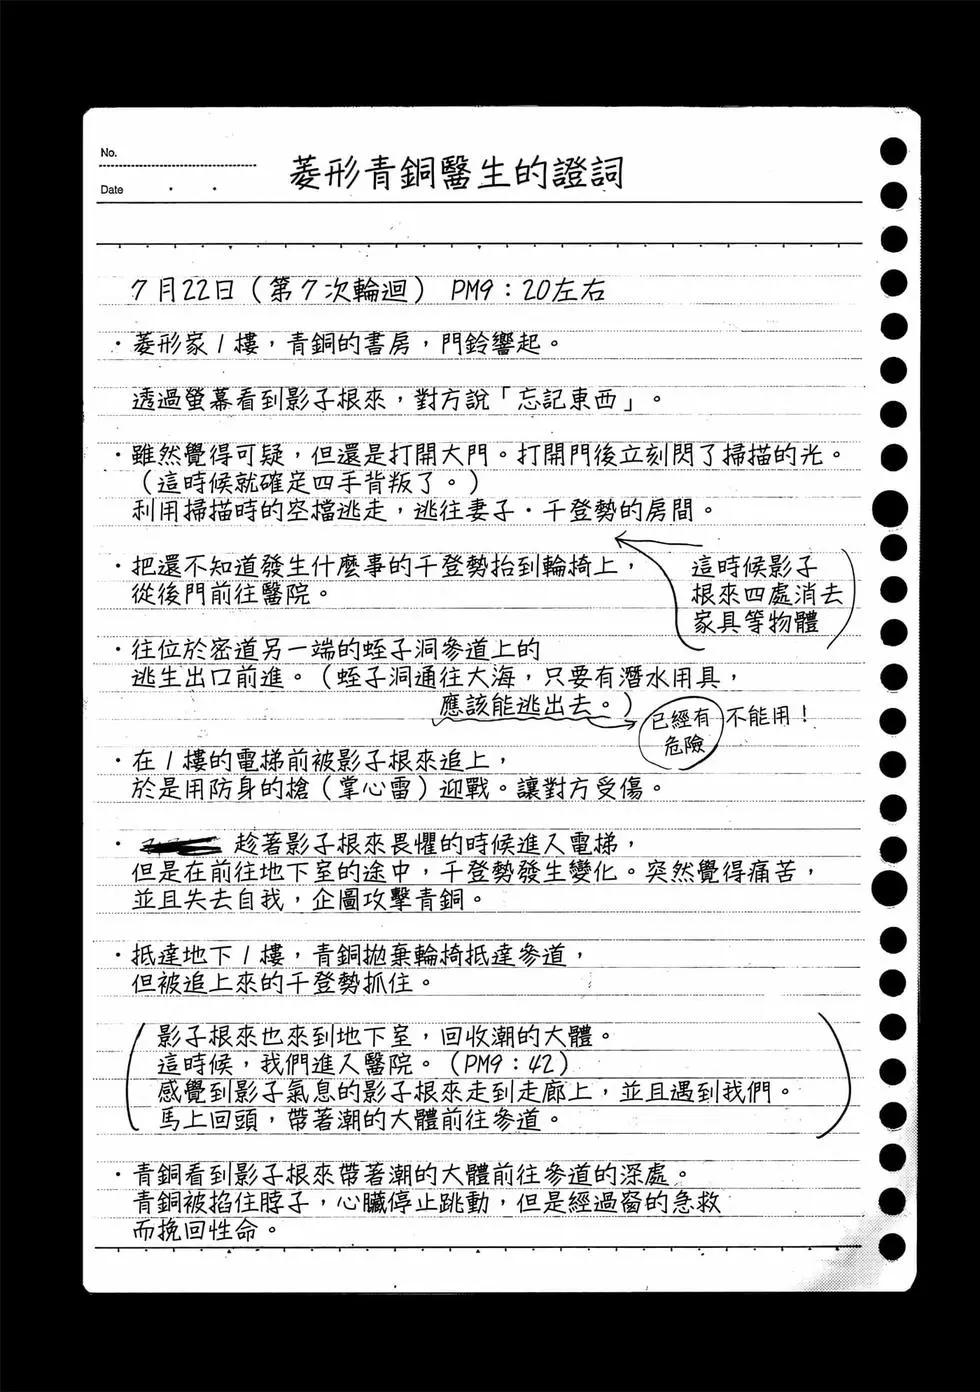 No.
Date
菱形青銅醫生的證詞
7月22日（第7次輪迴） PM9：20左右
・菱形家1樓，青銅的書房，門鈴響起。
透過螢幕看到影子根來，對方說「忘記東西」。
・雖然覺得可疑，但還是打開大門。打開門後立刻閃了掃描的光。
（這時候就確定四手背叛了。）
利用掃描時的空檔逃走，逃往妻子・千登勢的房間。
這時候影子
根來四處消去
家具等物體
・把還不知道發生什麼事的千登勢抬到輪椅上，
從後門前往醫院。
・往位於密道另一端的蛭子洞參道上的
逃生出口前進。（蛭子洞通往大海，只要有潛水用具，
應該能逃出去。）
已經有
危險
不能用！
・在1樓的電梯前被影子根來追上，
於是用防身的槍（掌心雷）迎戰。讓對方受傷。
・趁著影子根來畏懼的時候進入電梯，
但是在前往地下室的途中，千登勢發生變化。突然覺得痛苦，
並且失去自我，企圖攻擊青銅。
・抵達地下1樓，青銅拋棄輪椅抵達參道，
但被追上來的千登勢抓住。
影子根來也來到地下室，回收潮的大體。
這時候，我們進入醫院。（PM9：42）
感覺到影子氣息的影子根來走到走廊上，並且遇到我們。
馬上回頭，帶著潮的大體前往參道。
・青銅看到影子根來帶著潮的大體前往參道的深處。
青銅被掐住脖子，心臟停止跳動，但是經過窗的急救
而挽回性命。